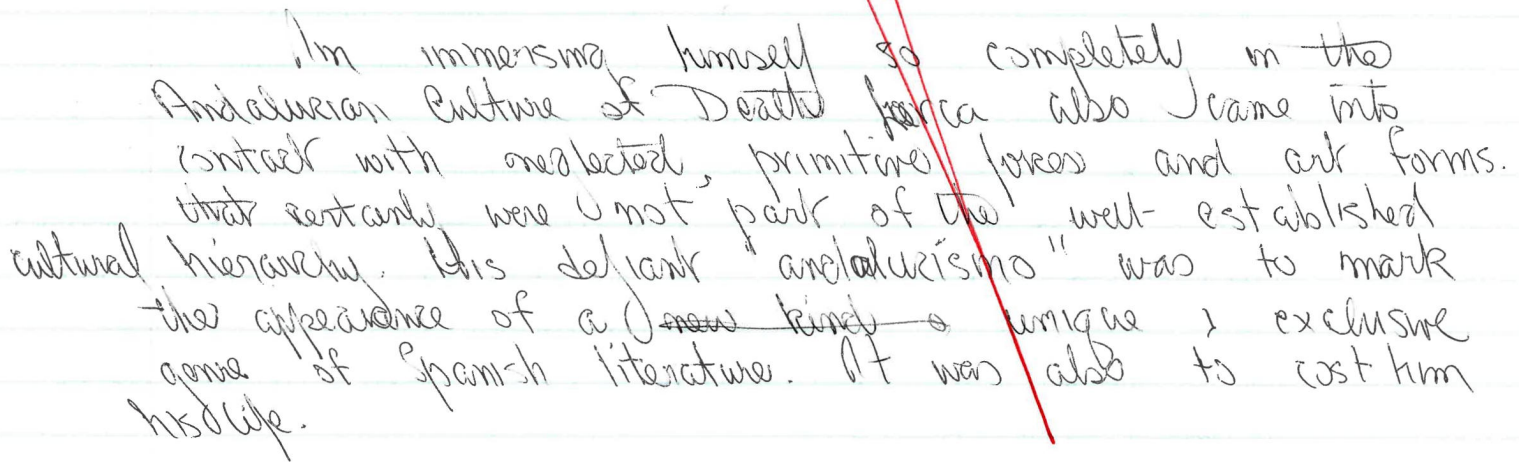 In immersing himself so completely in the
Andalusian Culture of Death Lorca also came into
contact with neglected, primitive forces and art forms.
that certanly were not part of the well-established
cultural hierarchy. His defiant "andalucismo" was to mark
the appearance of a new kind o unique & exclusive
genre of Spanish literature. It was also to cost him
his life.